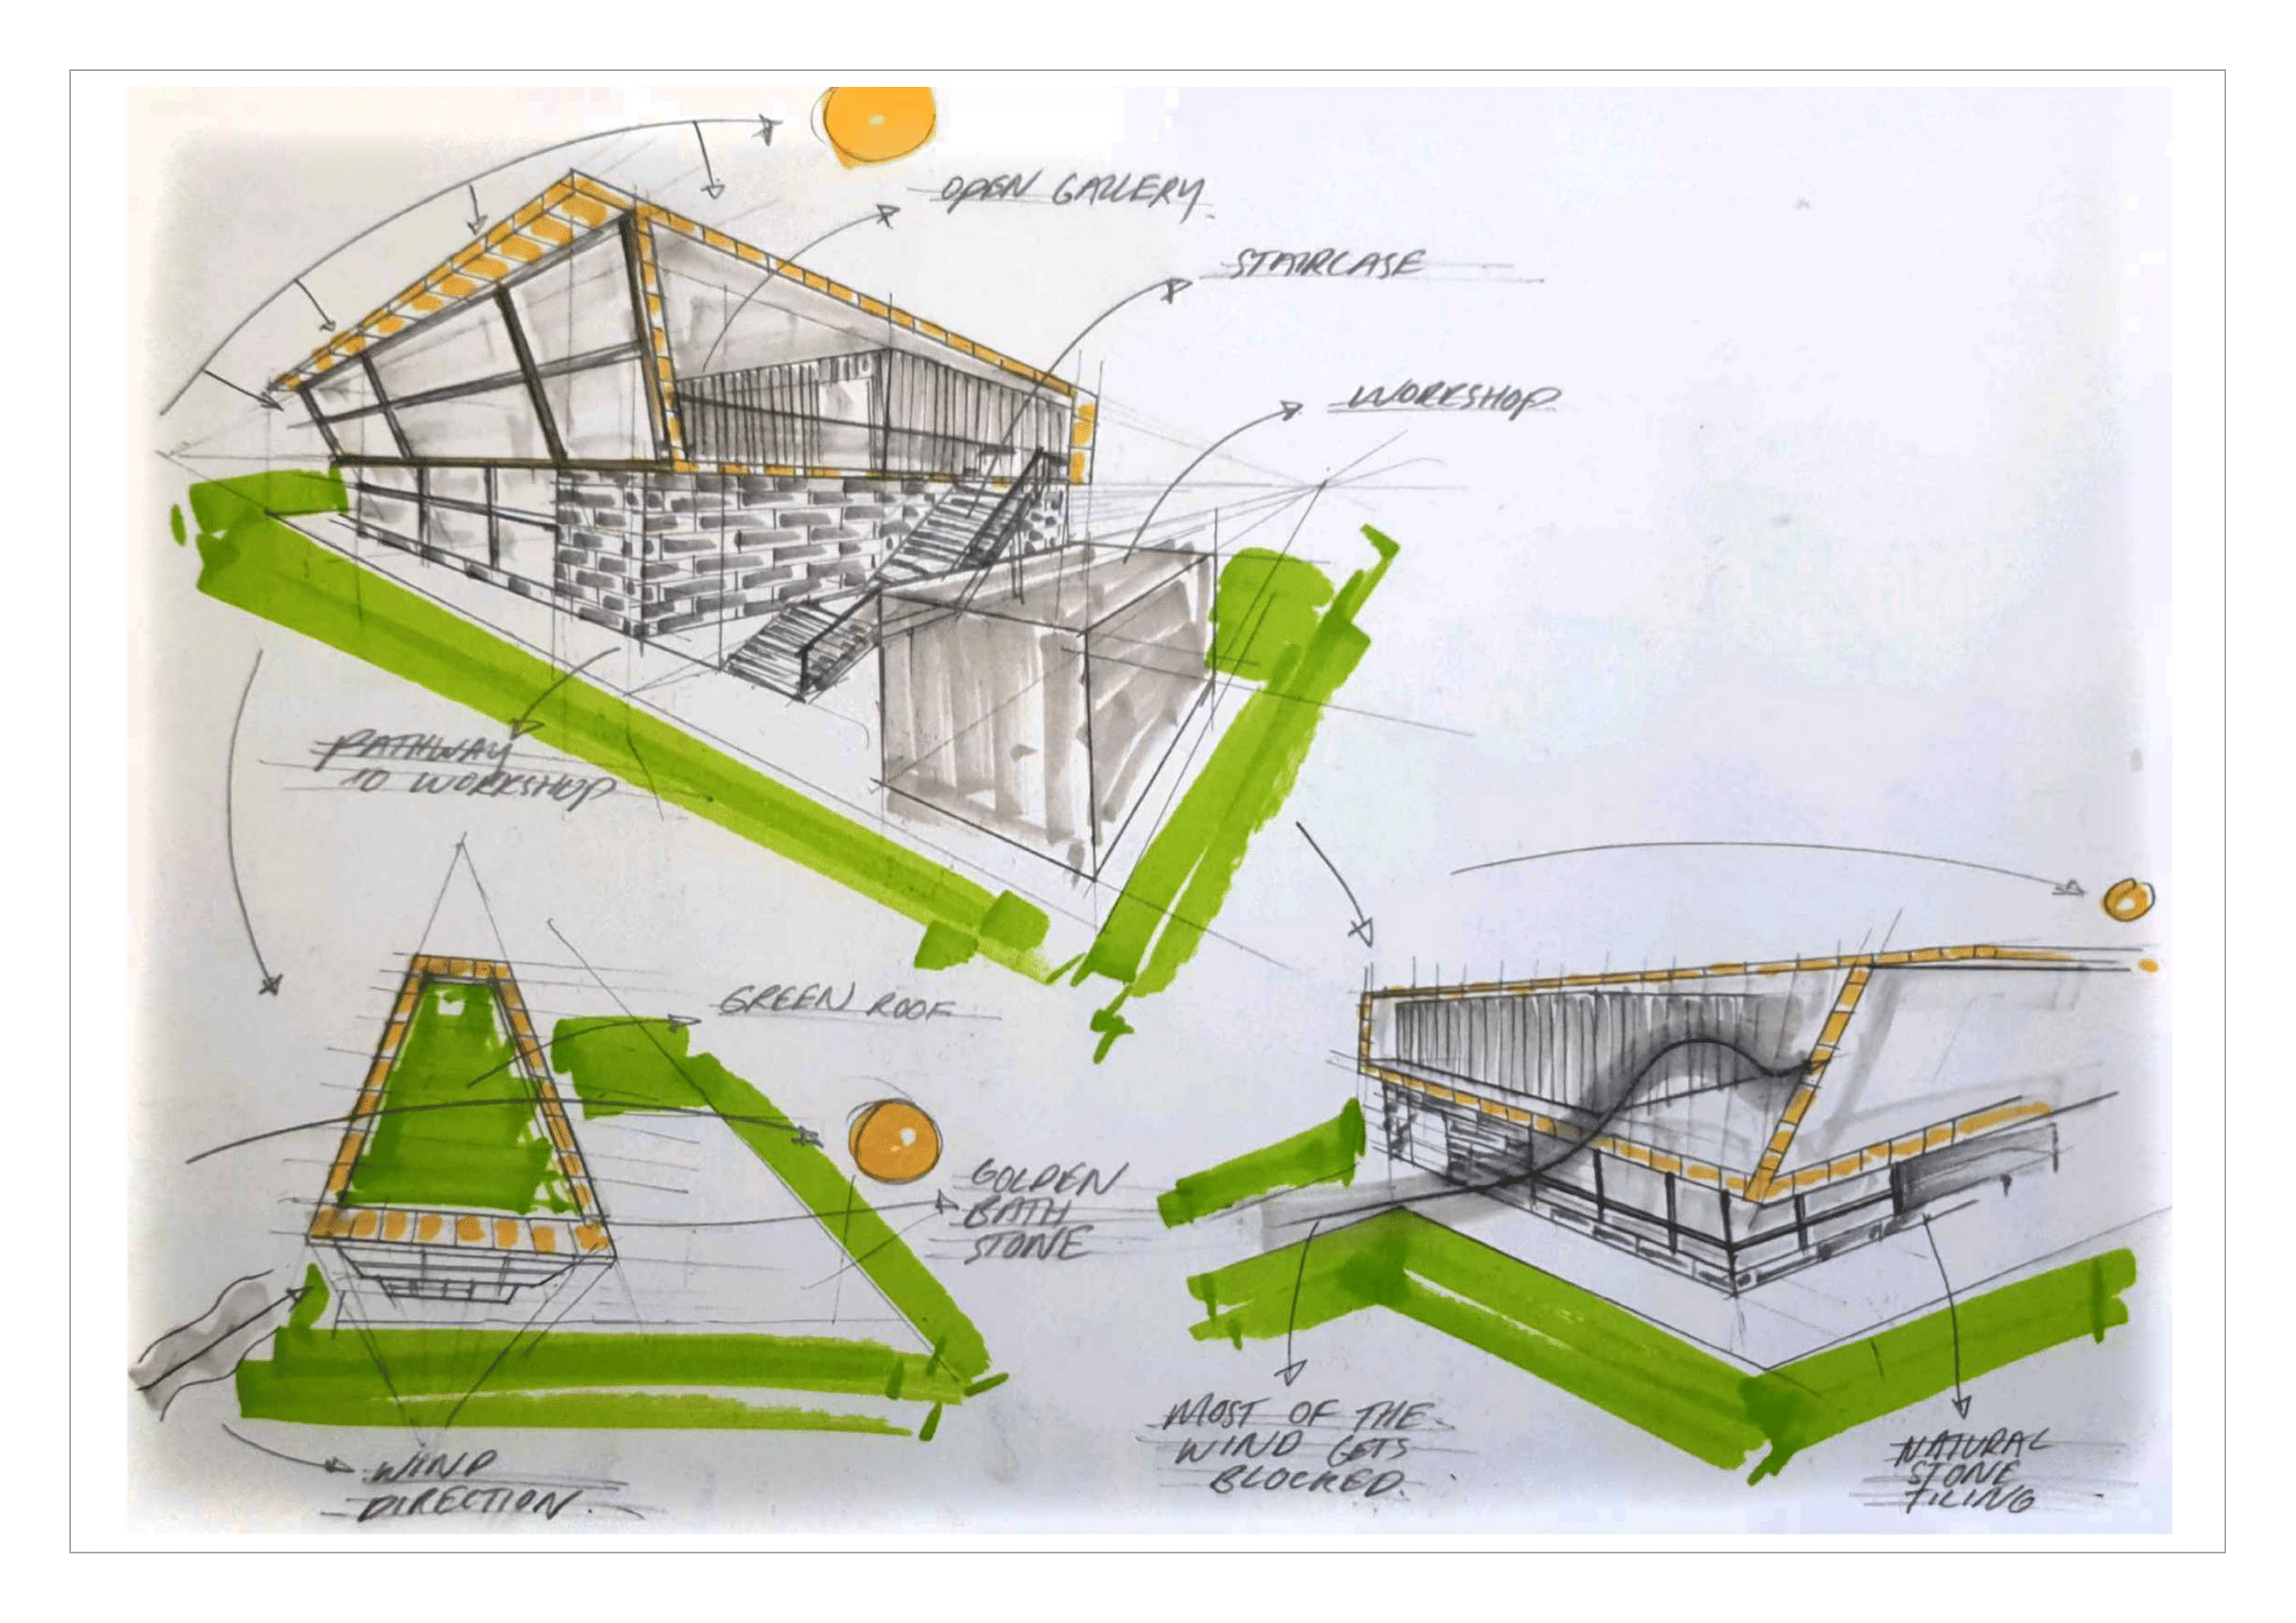 OPEN GALLERY.
STAIRCASE
WORKSHOP
PATHWAY
TO WORKSHOP
GREEN ROOF
GOLDEN
BATH
STONE
WIND
DIRECTION.
MOST OF THE
WIND GETS
BLOCKED.
NATURAL
STONE
TILING